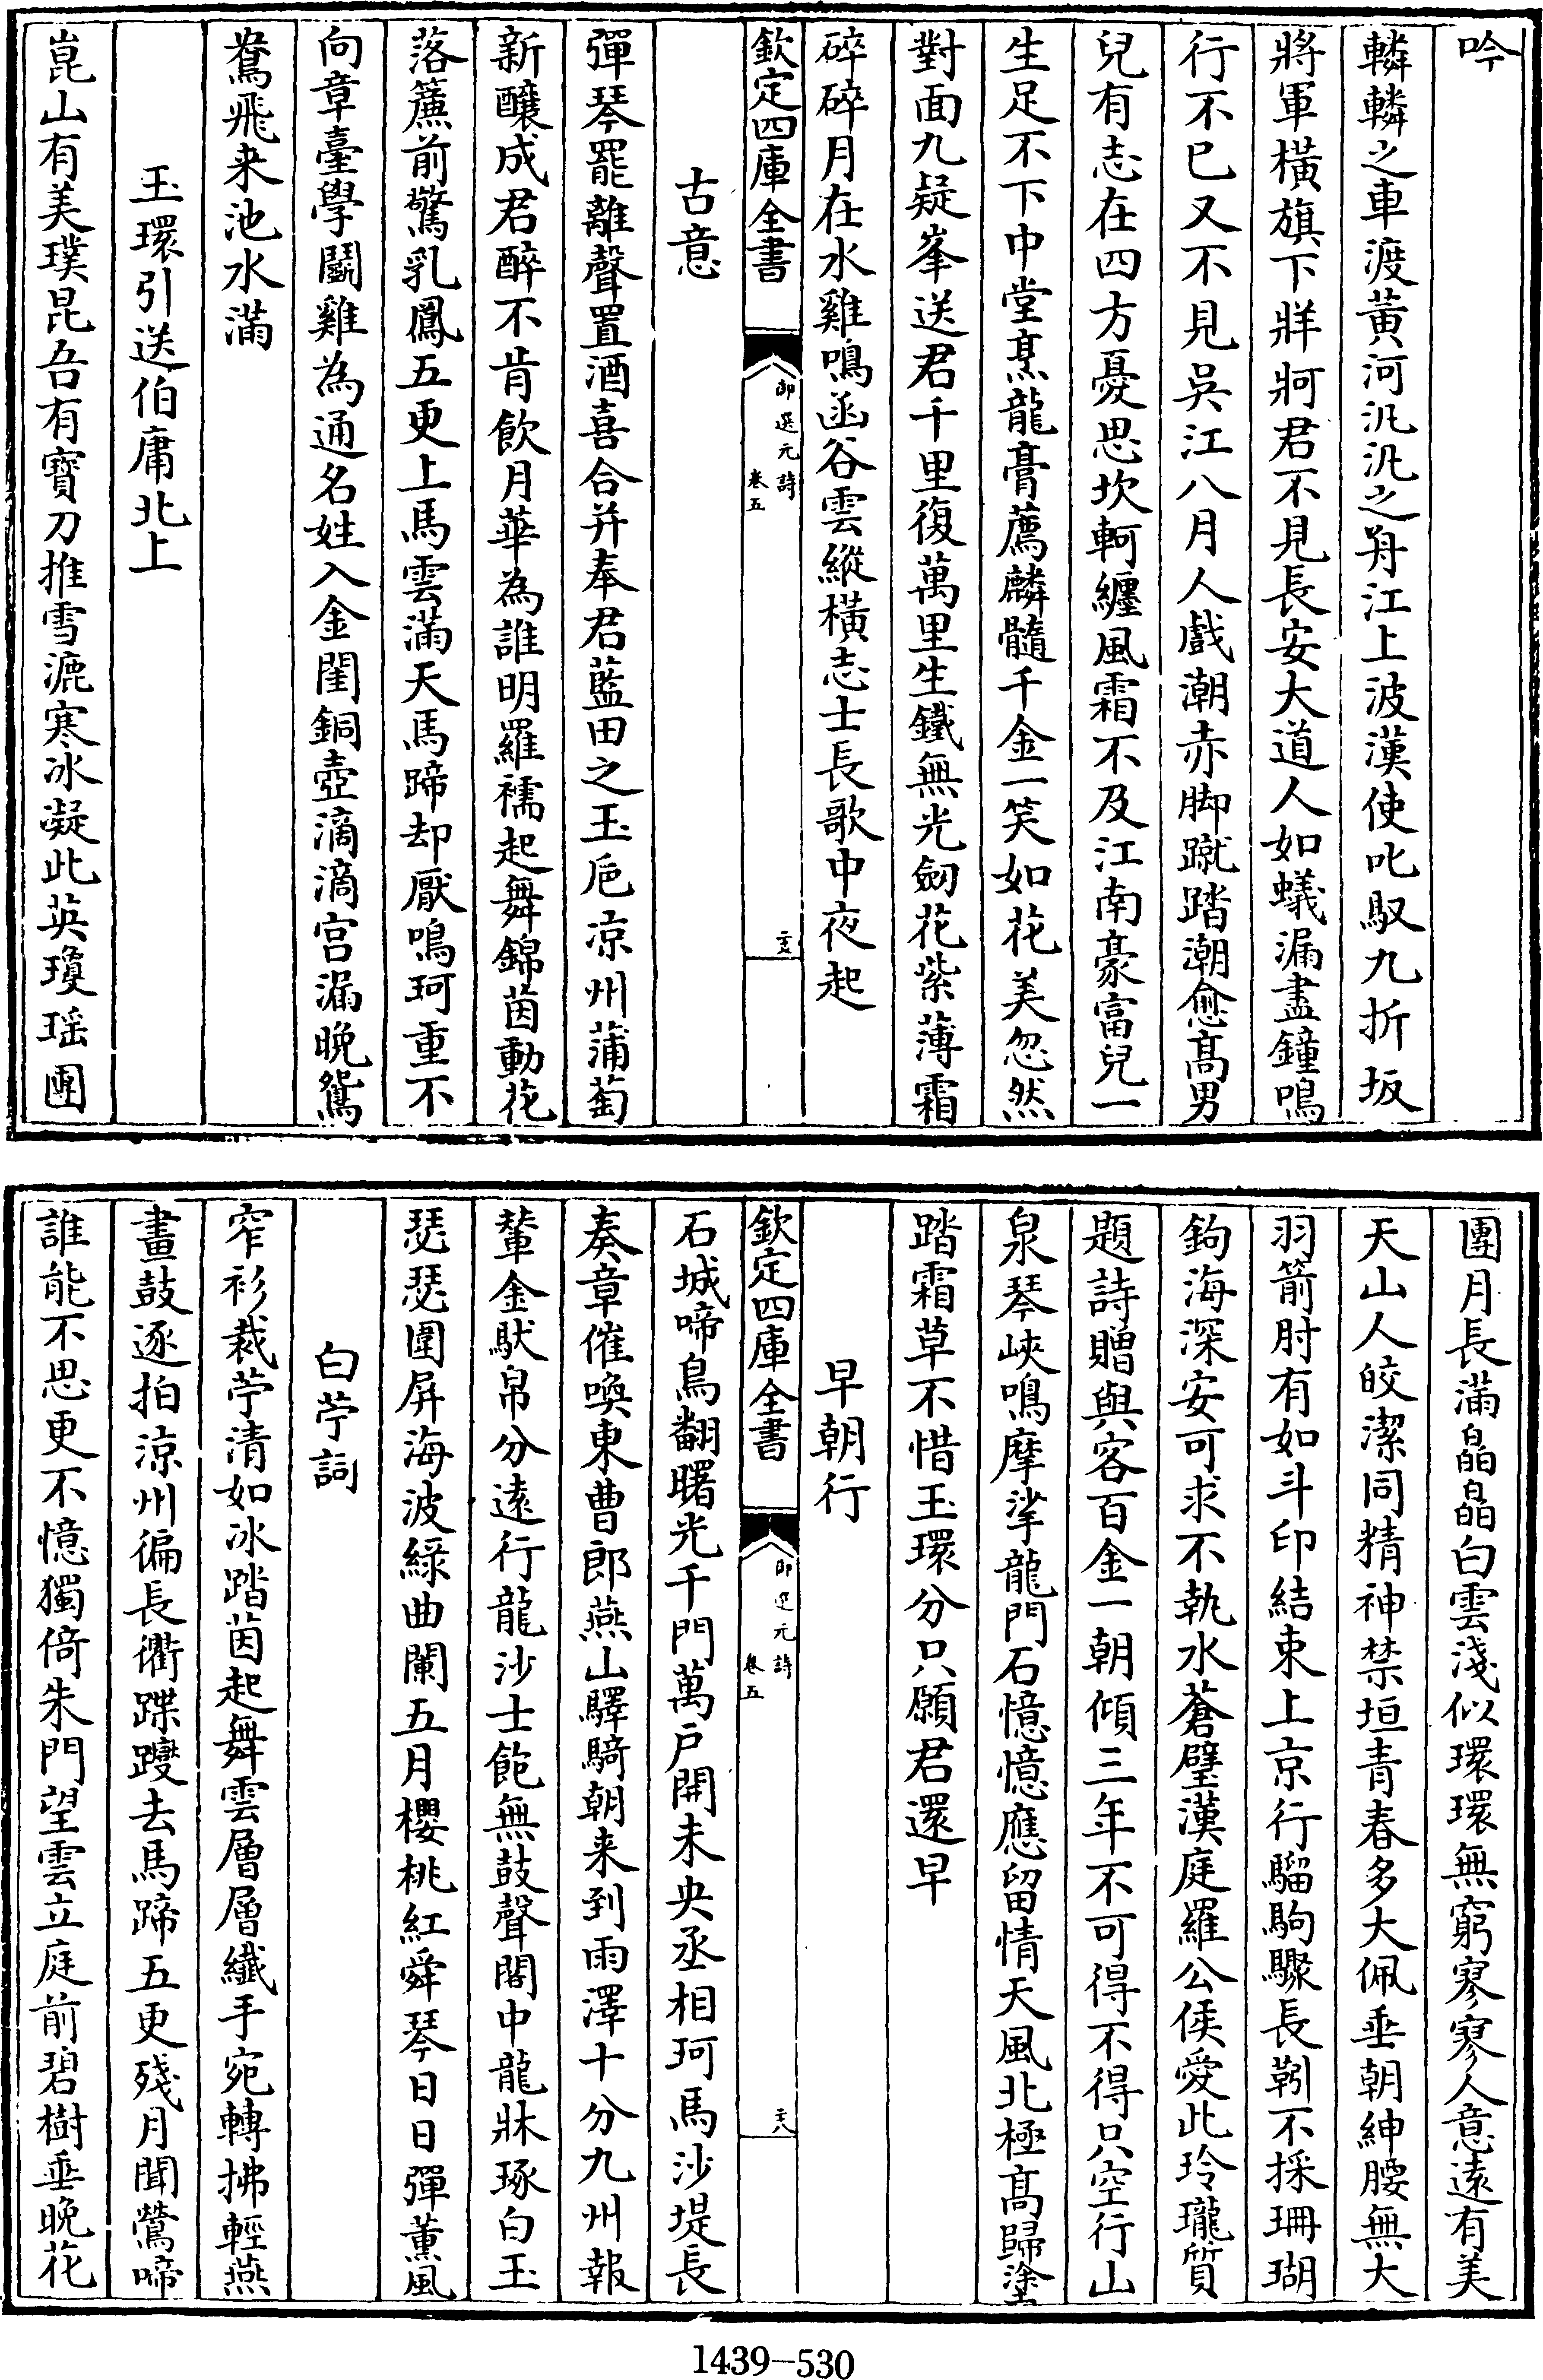 吟
轔轔之車渡黃河汎汎之舟江上波漢使叱馭九折坂
將軍橫旗下牂牁君不見長安大道人如蟻漏盡鐘鳴
行不已又不見吳江八月人戲潮赤脚蹴踏潮愈高男
兒有志在四方憂思坎軻纏風霜不及江南豪富兒一
生足不下中堂烹龍膏薦麟髓千金一笑如花美忽然
對面九疑峯送君千里復萬里生鐵無光劒花紫薄霜
碎碎月在水雞鳴函谷雲縱橫志士長歌中夜起
欽定四庫全書
御選元詩
卷五
二五
古意
彈琴罷離聲置酒喜合并奉君藍田之玉巵凉州蒲萄
新釀成君醉不肯飲月華為誰明羅襦起舞錦茵動花
落簾前驚乳鳳五更上馬雲滿天馬蹄却厭鳴珂重不
向章臺學鬬雞為通名姓入金閨銅壺滴滴宫漏晚鴛
鴦飛来池水滿
玉環引送伯庸北上
崑山有美璞昆吾有寳刀推雪漉寒冰凝此英瓊瑶團
團月長滿晶晶白雲淺似環環無窮寥寥人意遠有美
天山人皎潔同精神禁垣青春多大佩垂朝紳腰無大
羽箭肘有如斗印結束上京行騮駒驟長靷不採珊瑚
鉤海深安可求不執水蒼璧漢庭羅公侯愛此玲瓏質
題詩贈與客百金一朝傾三年不可得不得只空行山
泉琴峽鳴摩挲龍門石憶憶應留情天風北極高歸塗
踏霜草不惜玉環分只願君還早
早朝行
欽定四庫全書
御選元詩
卷五
二六
石城啼烏翻曙光千門萬户開未央丞相珂馬沙堤長
奏章催喚東曹郎燕山驛騎朝来到雨澤十分九州報
輦金䭾帛分遠行龍沙士飽無鼓聲閣中龍牀琢白玉
瑟瑟圍屏海波緑曲闌五月櫻桃紅舜琴日日彈薰風
白苧詞
窄衫裁苧清如冰踏茵起舞雲層層纖手宛轉拂輕燕
畫鼓逐拍涼州徧長衢蹀躞去馬蹄五更殘月聞鶯啼
誰能不思更不憶獨倚朱門望雲立庭前碧樹垂晚花
1439—530